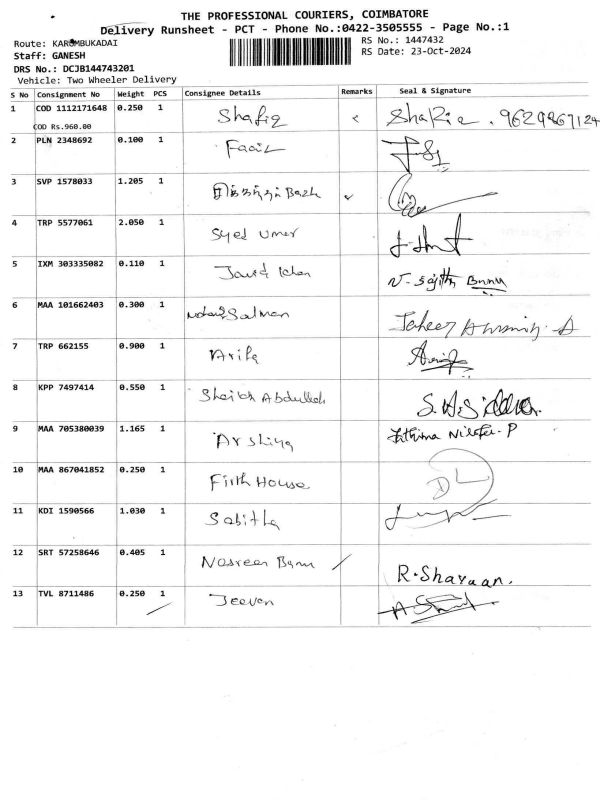 THE PROFESSIONAL COURIERS, COIMBATORE
Delivery Runsheet - PCT - Phone No.:0422-3505555 - Page No.:1
Route: KARUMBUKADAI
RS No.: 1447432
Staff: GANESH
RS Date: 23-Oct-2024
DRS No.: DCJB144743201
Vehicle: Two Wheeler Delivery
S No Consignment No Weight PCS Consignee Details Remarks Seal & Signature
1 COD 1112171648 0.250 1 Shafiq
COD Rs.960.00
2 PLN 2348692 0.100 1
3 SVP 1578033 1.205 1
4 TRP 5577061 2.050 1 Syed Umer
5 IXM 303335082 0.110 1 Javid Khan
6 MAA 101662403 0.300 1 Salman
7 TRP 662155 0.900 1 Arifa
8 KPP 7497414 0.550 1 Sheikh Abdullah
9 MAA 705380039 1.165 1 Arshiya Fathima Nilofer. P
10 MAA 867041852 0.250 1 Firth House
11 KDI 1590566 1.030 1 Sabitha
12 SRT 57258646 0.405 1 Nasreen Banu R. Sharaan.
13 TVL 8711486 0.250 1 Jeevan